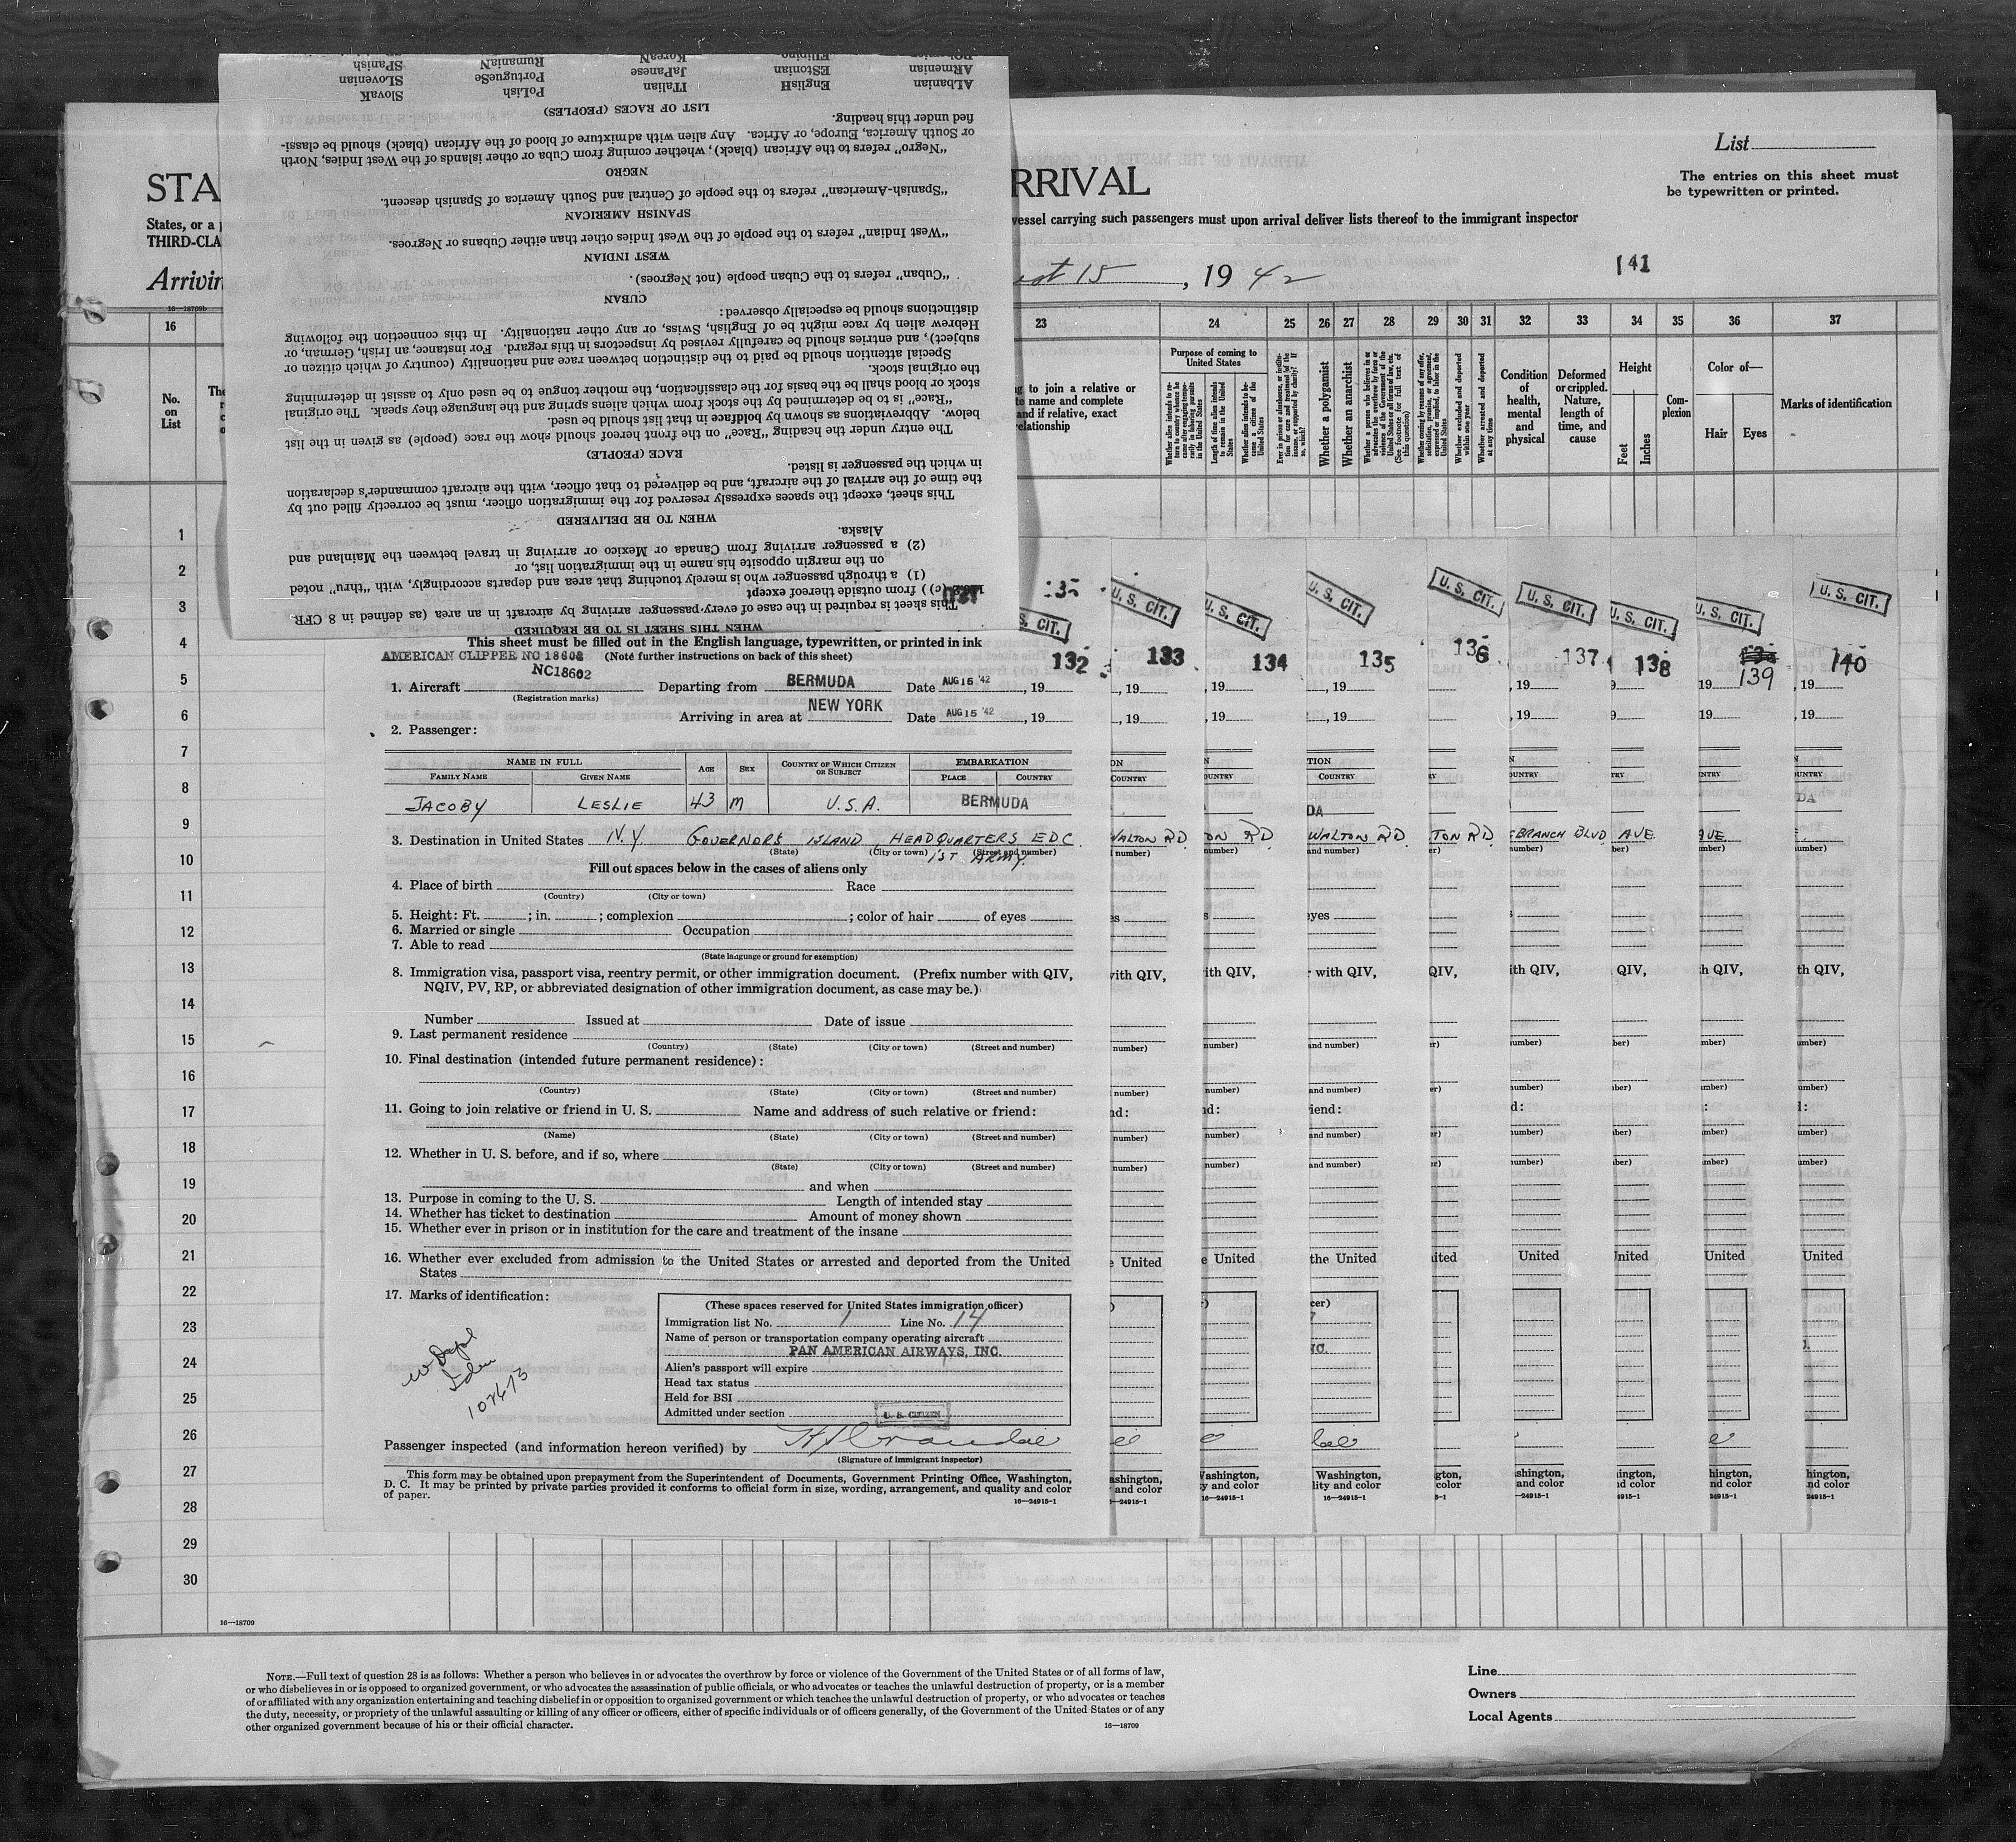 SLovaK
SLOvenian
SPanish
PoLish
PortugueSe
RumaniaN
ITalian
JaPanese
KoreaN
EngliSH
EStonian
FIlipino
ALbanian
ARmenian
LIST OF RACES (PEOPLES)
fied under this heading.
or South America, Europe, or Africa. Any alien with admixture of blood of the African (black) should be classi-
"Negro" refers to the African (black), whether coming from Cuba or other islands of the West Indies, North
NEGRO
"Spanish-American" refers to the people of Central and South America of Spanish descent.
SPANISH AMERICAN
"West Indian" refers to the people of the West Indies other than either Cubans or Negroes.
WEST INDIAN
"Cuban" refers to the Cuban people (not Negroes).
CUBAN
distinctions should be especially observed:
Hebrew alien by race might be of English, Swiss, or any other nationality. In this connection the following
subject), and entries should be carefully revised by inspectors in this regard. For instance, an Irish, German, or
Special attention should be paid to the distinction between race and nationality (country of which citizen or
the original stock.
stock or blood shall be the basis for the classification, the mother tongue to be used only to assist in determining
"Race" is to be determined by the stock from which aliens spring and the language they speak. The original
below. Abbreviations as shown by boldface in that list should be used.
The entry under the heading "Race" on the front hereof should show the race (people) as given in the list
RACE (PEOPLE)
in which the passenger is listed.
the time of the arrival of the aircraft, and be delivered to that officer, with the aircraft commander's declaration
This sheet, except the spaces expressly reserved for the immigration officer, must be correctly filled out by
WHEN TO BE DELIVERED
Alaska.
(2) a passenger arriving from Canada or Mexico or arriving in travel between the Mainland and
on the margin opposite his name in the immigration list, or
(1) a through passenger who is merely touching that area and departs accordingly, with "thru" noted
(c)) from outside thereof except
This sheet is required in the case of every passenger arriving by aircraft in an area (as defined in 8 CFR
WHEN THIS SHEET IS TO BE REQUIRED
STA
RRIVAL
List
The entries on this sheet must
be typewritten or printed.
States, or a
vessel carrying such passengers must upon arrival deliver lists thereof to the immigrant inspector
THIRD-CLA
Arrivin
15, 19 42
141
16—18709b
16 23 24 25 26 27 28 29 30 31 32 33 34 35 36 37
No.
on
List
to join a relative or
name and complete
and if relative, exact
relationship
Purpose of coming to
United States
Whether a polygamist
Whether an anarchist
Condition
of
health,
mental
and
physical
Deformed
or crippled.
Nature,
length of
time, and
cause
Height
Feet
Inches
Com-
plexion
Color of—
Hair
Eyes
Marks of identification
1
2
3
4
5
6
7
8
9
10
11
12
13
14
15
16
17
18
19
20
21
22
23
24
25
26
27
28
29
30
S. CIT.
U. S. CIT.
U. S. CIT.
U. S. CIT.
U. S. CIT.
U. S. CIT.
U. S. CIT.
U. S. CIT.
U. S. CIT.
132 133 134 135 136 137 138 139 140
This sheet must be filled out in the English language, typewritten, or printed in ink
AMERICAN CLIPPER NC 18602 (Note further instructions on back of this sheet)
NC18602
1. Aircraft Departing from BERMUDA Date AUG 15 '42, 19
(Registration marks)
Arriving in area at NEW YORK Date AUG 15 '42, 19
2. Passenger:
NAME IN FULL
FAMILY NAME
GIVEN NAME
AGE
SEX
COUNTRY OF WHICH CITIZEN
OR SUBJECT
EMBARKATION
PLACE
COUNTRY
JACOBY LESLIE 43 M U.S.A. BERMUDA
3. Destination in United States N.Y. GOVERNORS ISLAND, HEADQUARTERS EDC
(State) (City or town) (Street and number)
1ST ARMY
WALTON RD.
ON RD
WALTON RD.
TON RD.
BRANCH BLVD
AVE.
AVE.
Fill out spaces below in the cases of aliens only
4. Place of birth Race
(Country) (City or town)
5. Height: Ft. ; in. ; complexion ; color of hair of eyes
6. Married or single Occupation
7. Able to read
(State language or ground for exemption)
8. Immigration visa, passport visa, reentry permit, or other immigration document. (Prefix number with QIV,
NQIV, PV, RP, or abbreviated designation of other immigration document, as case may be.)
Number Issued at Date of issue
9. Last permanent residence
(Country) (State) (City or town) (Street and number)
10. Final destination (intended future permanent residence):
(Country) (State) (City or town) (Street and number)
11. Going to join relative or friend in U. S. Name and address of such relative or friend:
(Name) (State) (City or town) (Street and number)
12. Whether in U. S. before, and if so, where
(State) (City or town) (Street and number)
and when
13. Purpose in coming to the U. S. Length of intended stay
14. Whether has ticket to destination Amount of money shown
15. Whether ever in prison or in institution for the care and treatment of the insane
16. Whether ever excluded from admission to the United States or arrested and deported from the United
States
17. Marks of identification:
(These spaces reserved for United States immigration officer)
Immigration list No. 1 Line No. 14
Name of person or transportation company operating aircraft
PAN AMERICAN AIRWAYS, INC.
Alien's passport will expire
Head tax status
Held for BSI
Admitted under section U. S. CITIZEN
Passenger inspected (and information hereon verified) by
(Signature of immigrant inspector)
This form may be obtained upon prepayment from the Superintendent of Documents, Government Printing Office, Washington,
D. C. It may be printed by private parties provided it conforms to official form in size, wording, arrangement, and quality and color
of paper.
16—24915-1
16—18709
NOTE.—Full text of question 28 is as follows: Whether a person who believes in or advocates the overthrow by force or violence of the Government of the United States or of all forms of law,
or who disbelieves in or is opposed to organized government, or who advocates the assassination of public officials, or who advocates or teaches the unlawful destruction of property, or is a member
of or affiliated with any organization entertaining and teaching disbelief in or opposition to organized government or which teaches the unlawful destruction of property, or who advocates or teaches
the duty, necessity, or propriety of the unlawful assaulting or killing of any officer or officers, either of specific individuals or of officers generally, of the Government of the United States or of any
other organized government because of his or their official character.
16—18709
Line
Owners
Local Agents